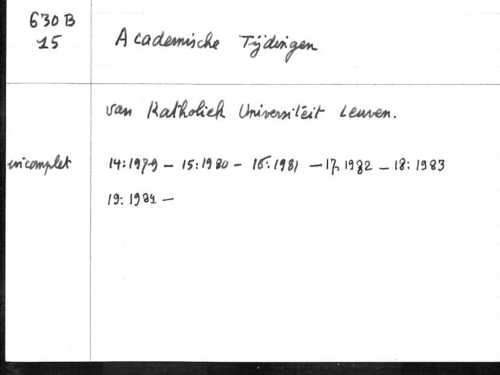 630 B
15
Academische Tijdingen
van Katholiek Universiteit Leuven.
incomplet
14:1979 – 15:1980 – 16:1981 – 17:1982 – 18:1983
19:1984 –